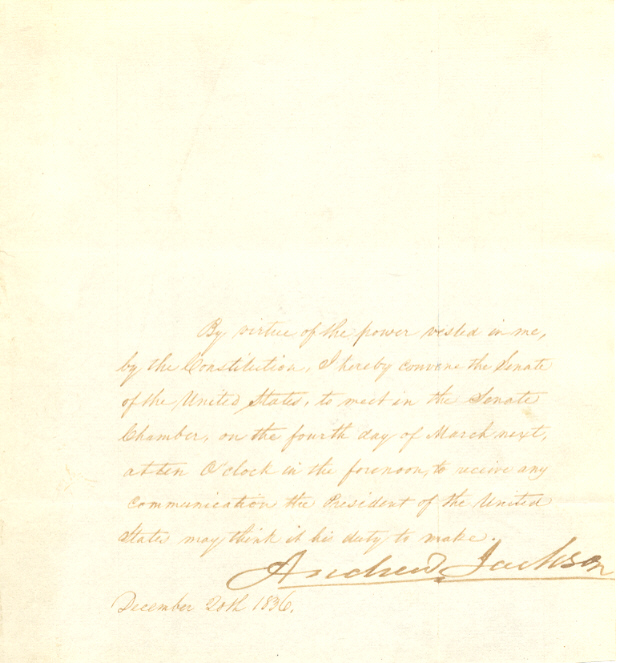 By virtue of the power vested in me,
by the Constitution, I hereby convene the Senate
of the United States, to meet in the Senate
Chamber, on the fourth day of March next,
at ten O'clock in the forenoon, to receive any
communication the President of the United
States may think it his duty to make.
Andrew Jackson
December 20th 1836.